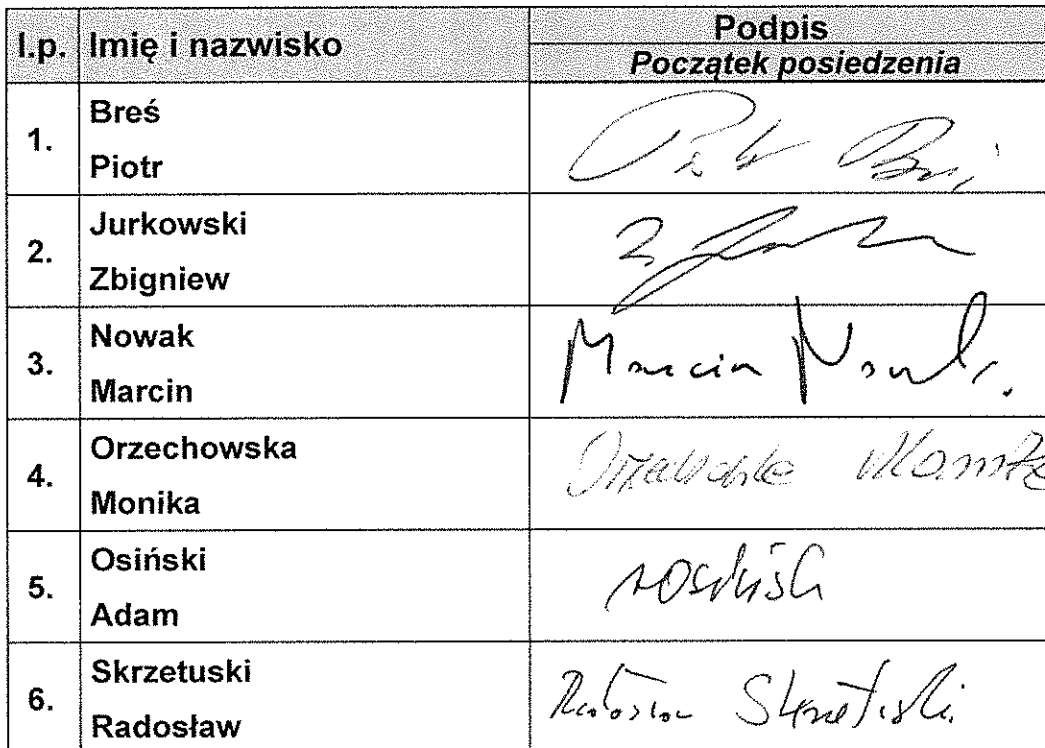 l.p. Imię i nazwisko Podpis
Początek posiedzenia
1. Breś
Piotr
Piotr Breś
2. Jurkowski
Zbigniew
Z
3. Nowak
Marcin
Marcin Nowak
4. Orzechowska
Monika
Orzechowska Monika
5. Osiński
Adam
AOsiński
6. Skrzetuski
Radosław
Radosław Skrzetuski